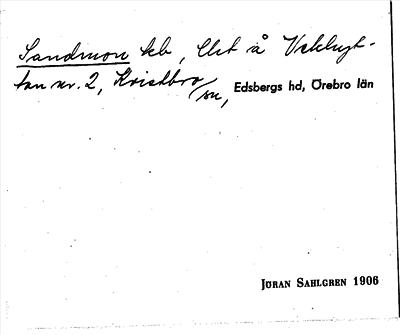 Sandmon lcb, Elct å Veklugt-
tan nr. 2, Kvistbro
sn, Edsbergs hd, Örebro län
JÖRAN SAHLGREN 1906